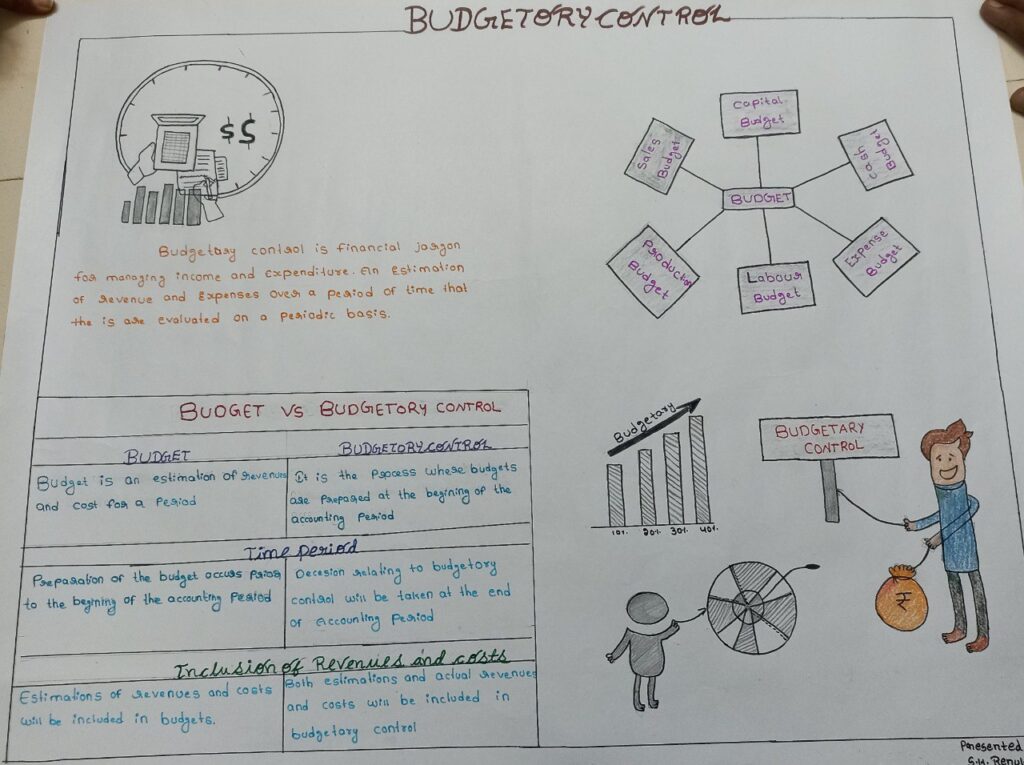 BUDGETORY CONTROL
$ $
Budgetary control is financial jargon
for managing income and expenditure. An Estimation
of revenue and Expenses over a period of time that
the is are evaluated on a periodic basis.
Capital
Budget
Sales
Budget
Cash
Budget
BUDGET
Production
Budget
Labour
Budget
Expense
Budget
BUDGET VS BUDGETORY CONTROL
BUDGET
BUDGETORY CONTROL
Budget is an estimation of revenues
and cost for a Period
It is the Process where budgets
are prepared at the begining of the
accounting Period
Time period
Preparation of the budget occurs Prior
to the begining of the accounting Period
Decesion relating to budgetory
control will be taken at the end
of accounting Period
Inclusion of Revenues and costs
Estimations of revenues and costs
will be included in budgets.
Both estimations and actual revenues
and costs will be included in
budgetary control
Budgetary
10% 20% 30% 40%
BUDGETARY
CONTROL
₹
Presented
S.H. Renu